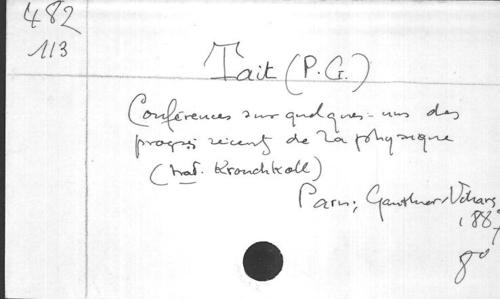 482
113
Tait (P.G.)
Conférences sur quelques-uns des
progrès récent de la physique
(trad. Krouchkoll)
Paris, Gauthier-Villars,
188
8°